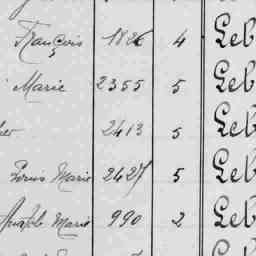 François 1826 4 Leb
Marie 2355 5 Leb
2413 5 Leb
Louis Marie 2427 5 Leb
Marie 990 2 Leb